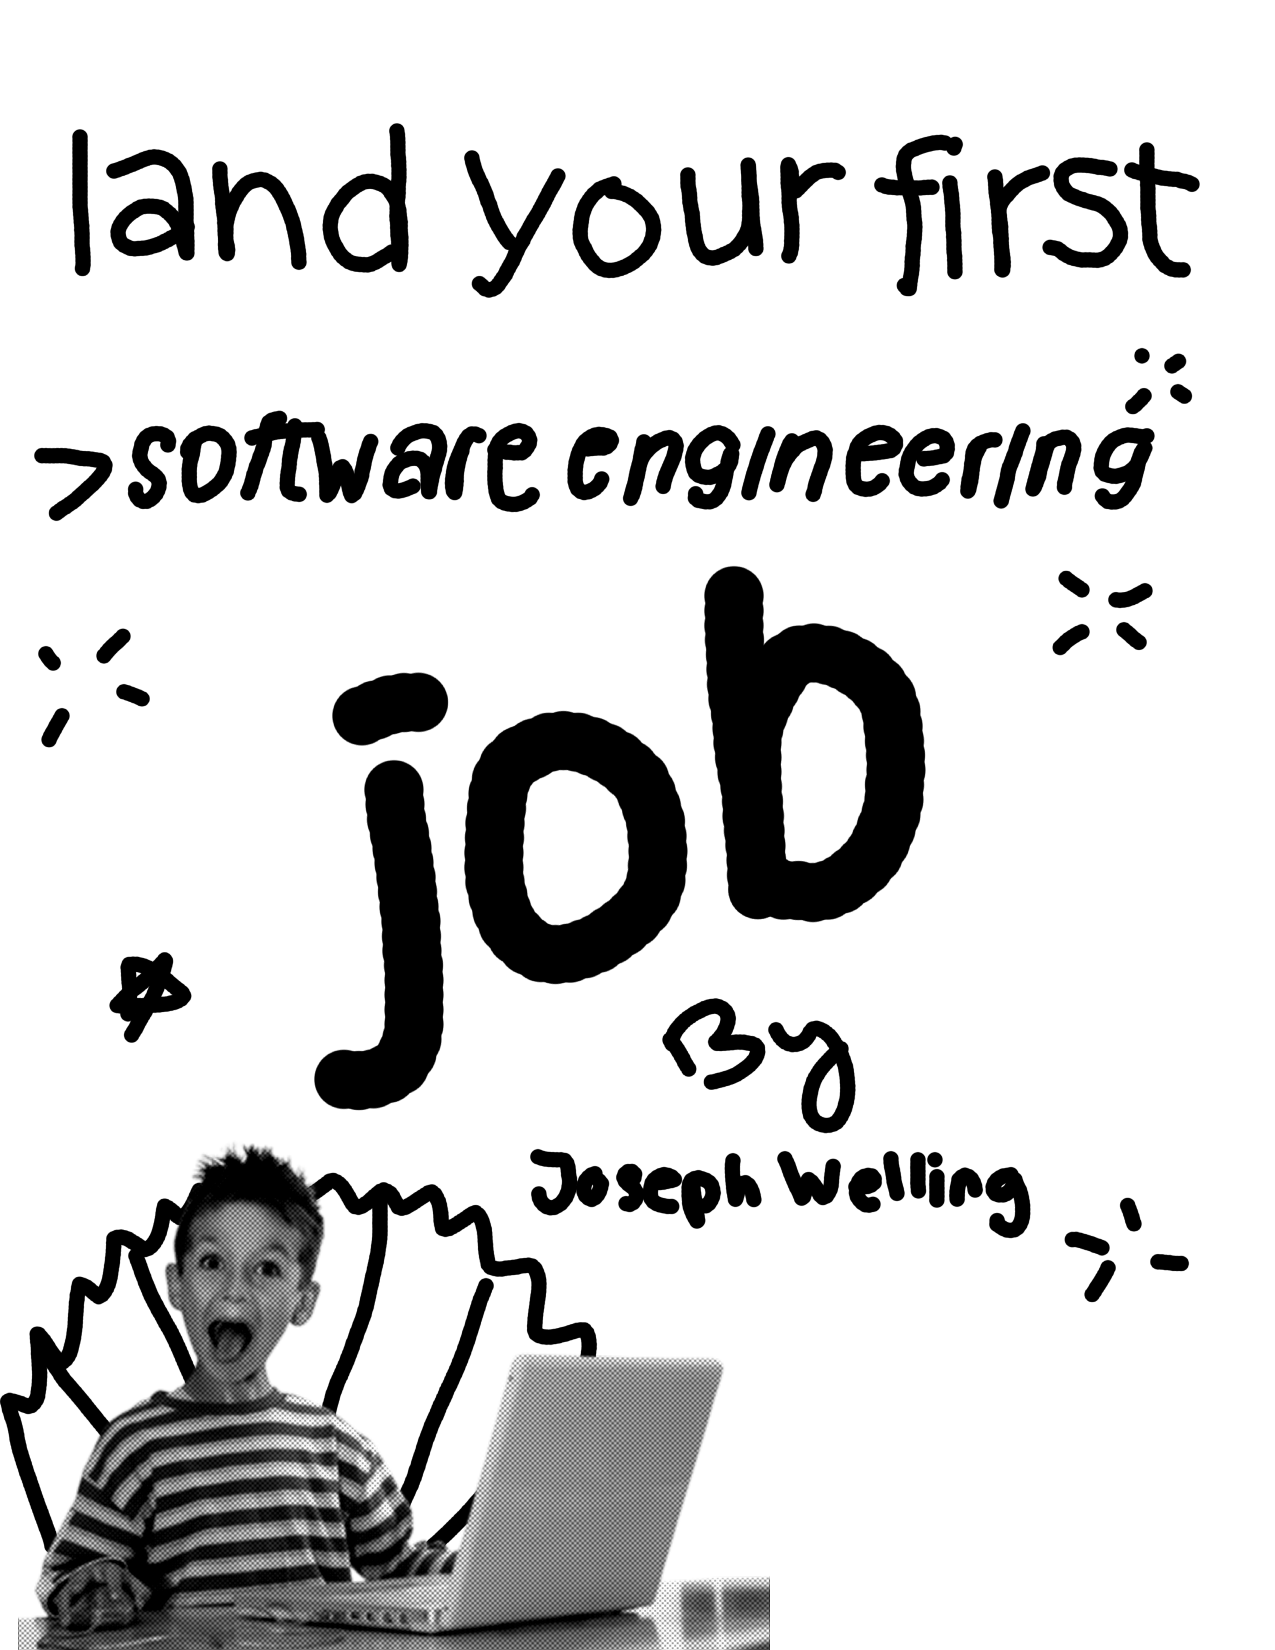 land your first
>software engineering
job
By
Joseph Welling